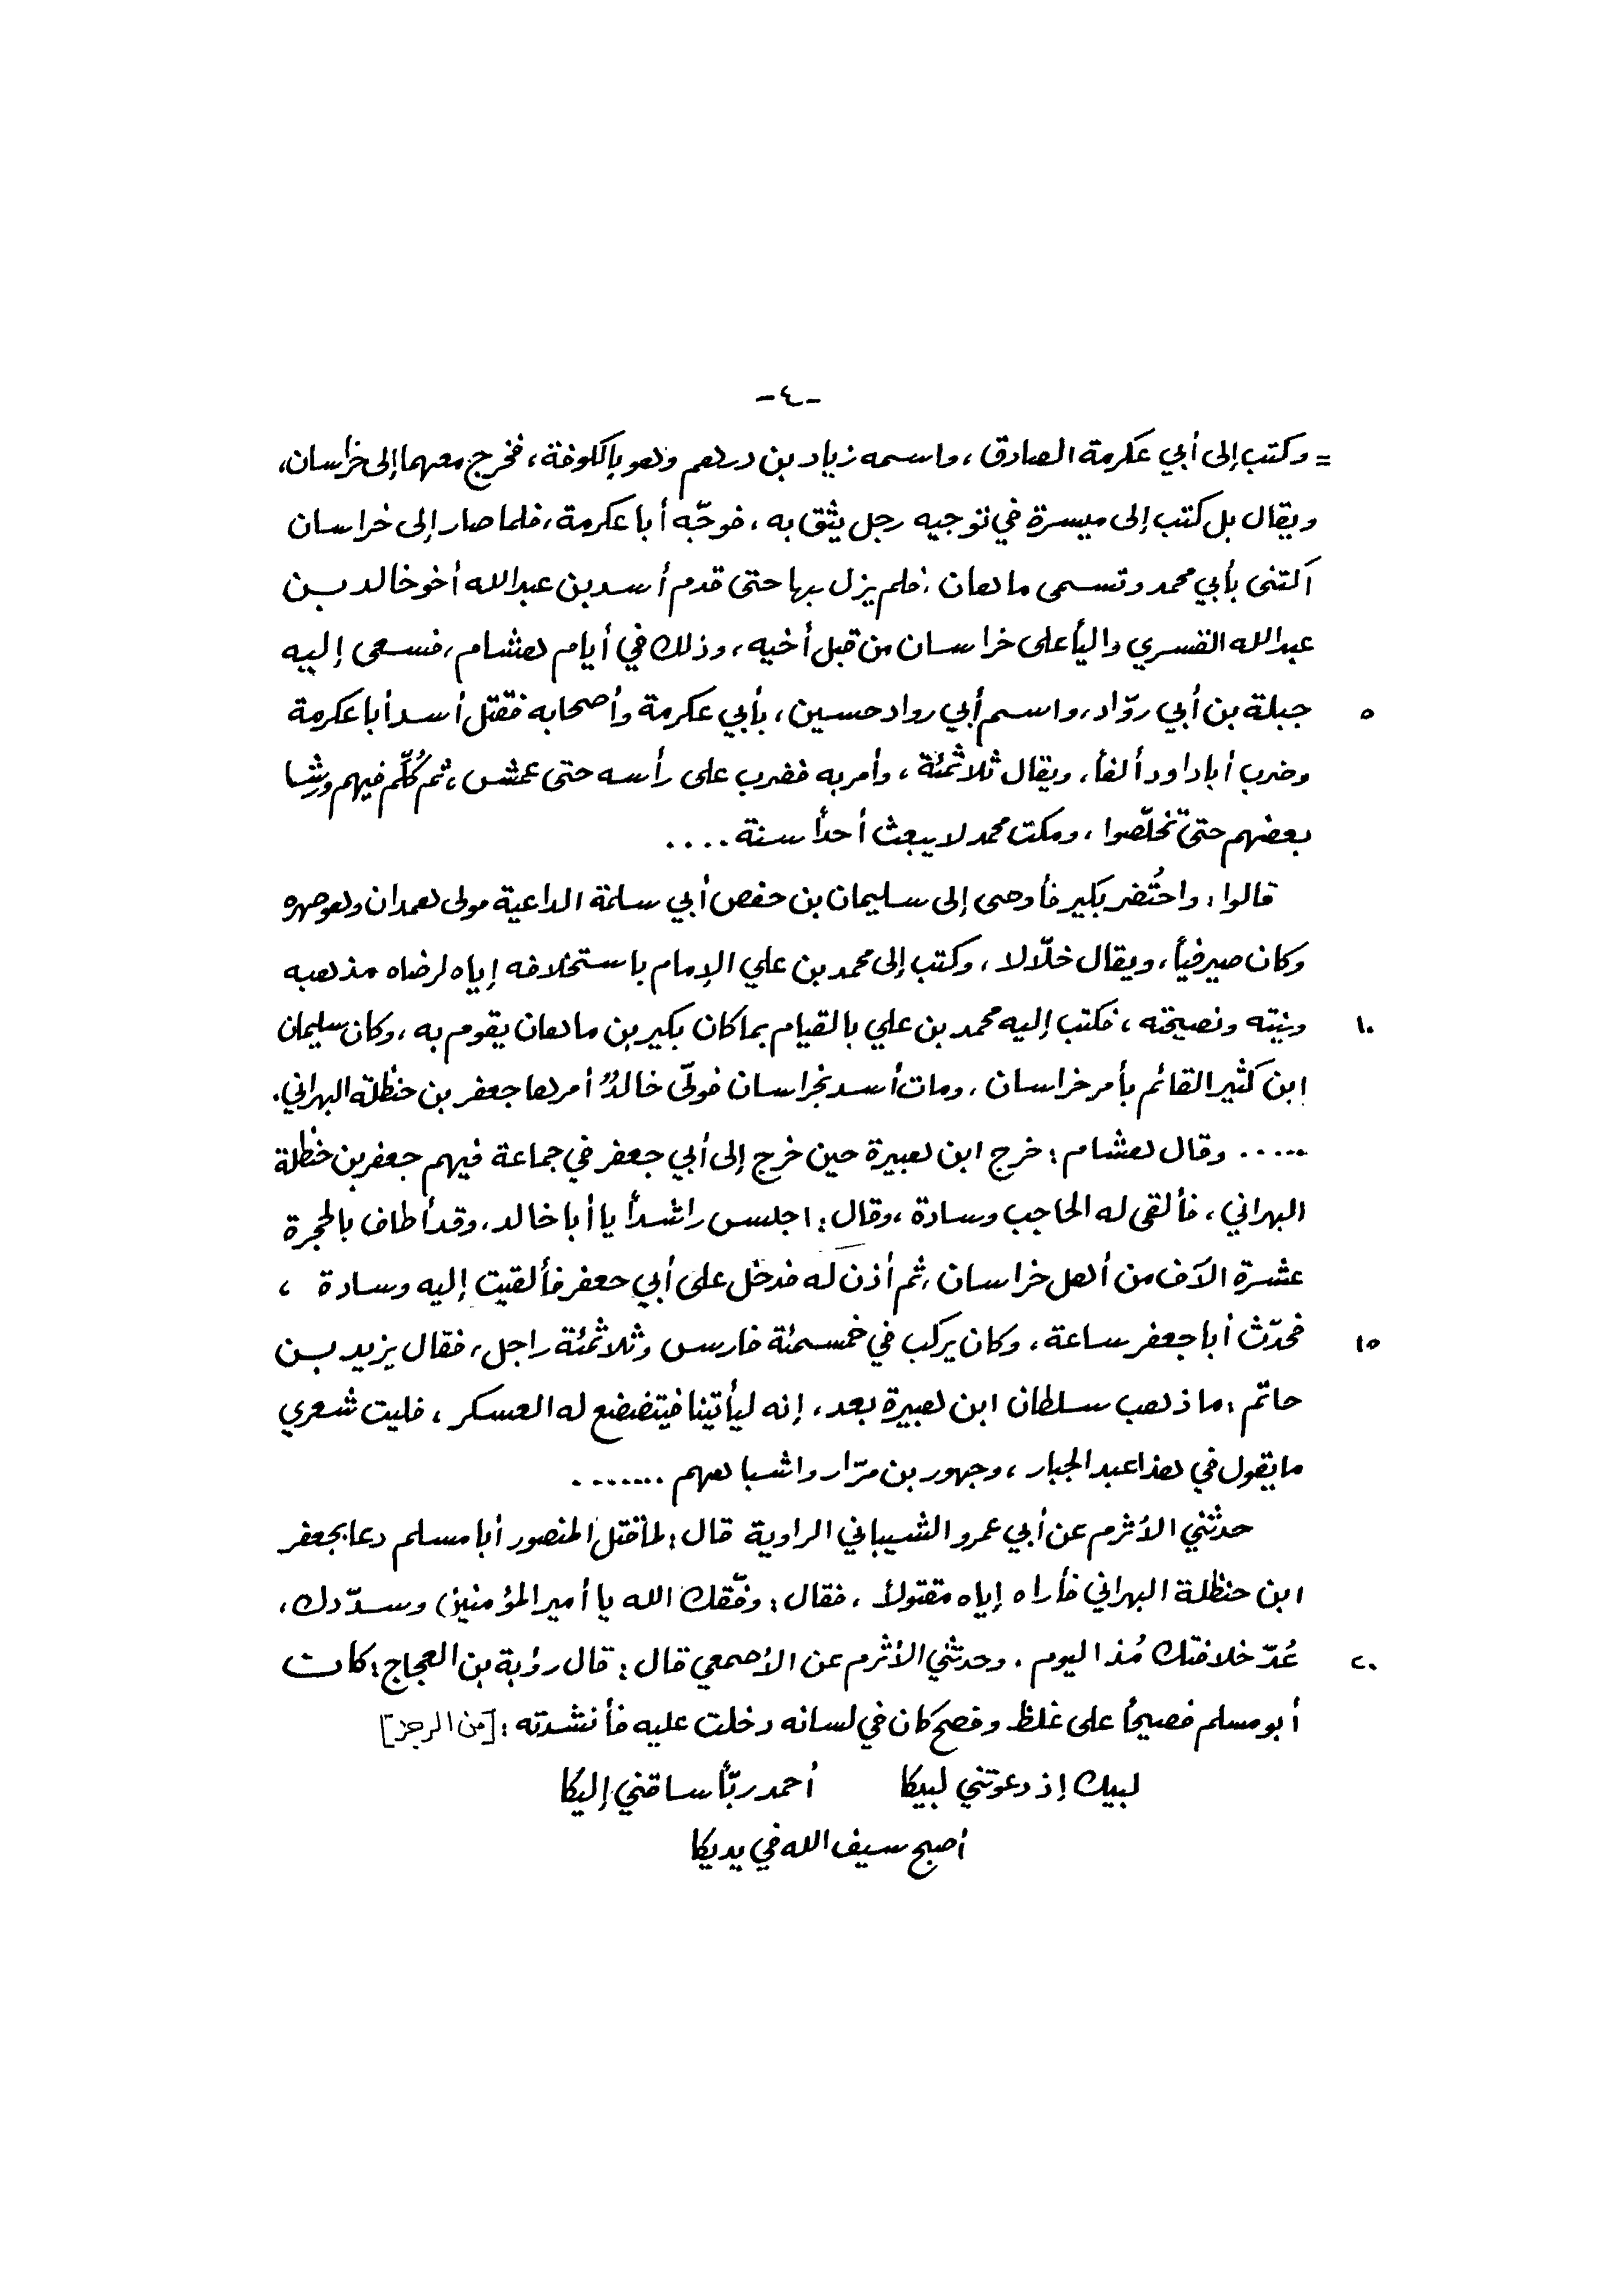 -٤-
= وكتب إلى أبي عكرمة الصادق، واسمه زياد بن درهم وهو بالكوفة، فخرج معهما إلى خراسان،
ويقال بل كتب إلى ميسرة في توجيه رجل يثق به، فوجّه أبا عكرمة، فلما صار إلى خراسان
اكتنى بأبي محمد وتسمى ماهان، فلم يزل بها حتى قدم أسد بن عبدالله أخو خالد بن
عبدالله القسري والياً على خراسان من قبل أخيه، وذلك في أيام هشام، فسعى إليه
٥ جبلة بن أبي روّاد، واسم أبي رواد حسين، بأبي عكرمة وأصحابه فقتل أسد أبا عكرمة
وضرب أبا داود ألفاً، ويقال ثلاثمئة، وأمر به فضرب على رأسه حتى عمش، ثم كُلّم فيهم ورشا
بعضهم حتى تخلّصوا، ومكث محمد لا يبعث أحداً سنة....
قالوا: واحتُضر بكير فأوصى إلى سليمان بن حفص أبي سلمة الداعية مولى همدان وهو صهره
وكان صيرفياً، ويقال خلّالا، وكتب إلى محمد بن علي الإمام باستخلافه إياه لرضاه مذهبه
١٠ ونيته ونصيحته، فكتب إليه محمد بن علي بالقيام بما كان بكير بن ماهان يقوم به، وكان سليمان
ابن كثير القائم بأمر خراسان، ومات أسد بخراسان فولّى خالدٌ أمرها جعفر بن حنظلة البهراني.
..... وقال هشام: خرج ابن هبيرة حين خرج إلى أبي جعفر في جماعة فيهم جعفر بن حنظلة
البهراني، فألقى له الحاجب وسادة، وقال: اجلس راشداً يا أبا خالد، وقد أطاف بالحجرة
عشرة الآف من أهل خراسان، ثم أذن له فدخل على أبي جعفر فألقيت إليه وسادة ،
١٥ فحدّث أبا جعفر ساعة، وكان يركب في خمسمئة فارس وثلاثمئة راجل، فقال يزيد بن
حاتم: ما ذهب سلطان ابن هبيرة بعد، إنه ليأتينا فيتضعضع له العسكر، فليت شعري
ما يقول في هذا عبد الجبار، وجهور بن مرّار واشباههم .......
حدثني الأثرم عن أبي عمرو الشيباني الراوية قال: لما قتل المنصور أبا مسلم دعا بجعفر
ابن حنظلة البهراني فأراه إياه مقتولاً، فقال: وفّقك الله يا أمير المؤمنين وسدّدك،
٢٠ عُدّ خلافتك مُذ اليوم. وحدثني الأثرم عن الأصمعي قال: قال رؤبة بن العجاج: كان
أبو مسلم فصيحاً على غلظ وفصح كان في لسانه دخلت عليه فأنشدته: [من الرجز]
لبيك إذ دعوتني لبيكا أحمد ربّاً ساقني إليكا
أصبح سيف الله في يديكا